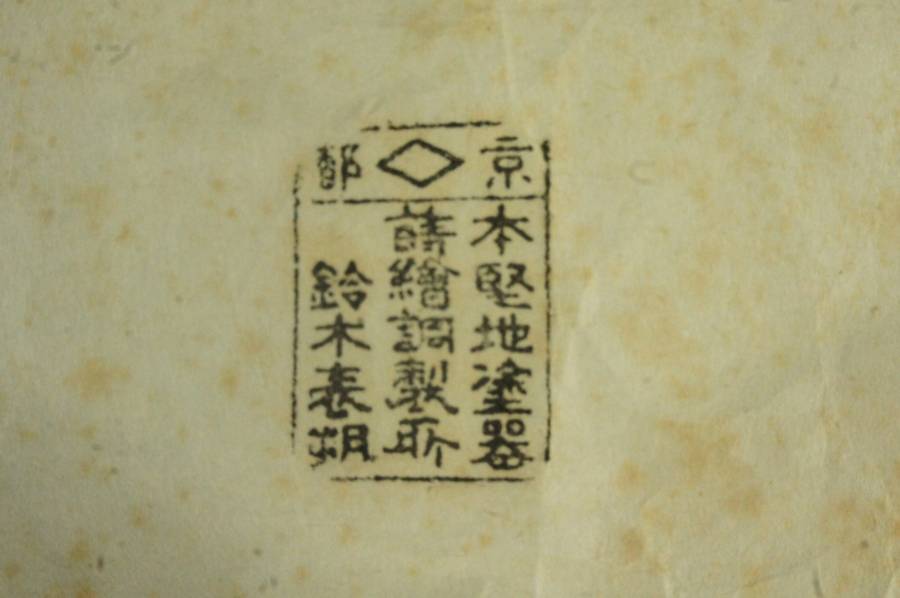 京◇都
本堅地塗器
蒔繪調製所
鈴木表朔